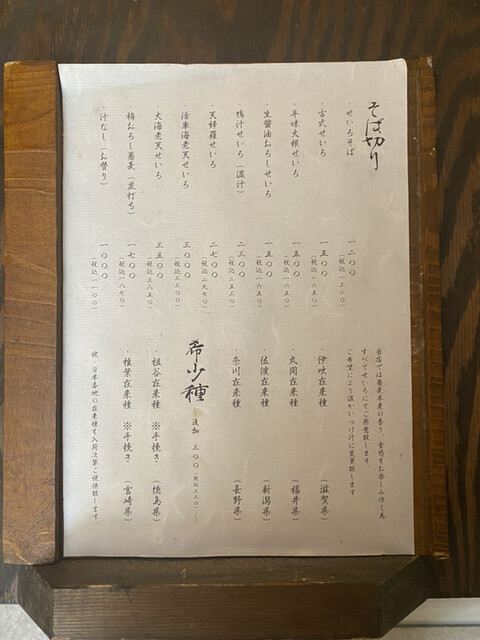 そば切り
・せいろそば 一二〇〇
(税込一三二〇)
・古式せいろ 一五〇〇
(税込一六五〇)
・辛味大根せいろ 一五〇〇
(税込一六五〇)
・生醤油おろしせいろ 一五〇〇
(税込一六五〇)
・鴨汁せいろ(温汁) 二三〇〇
(税込二五三〇)
・天婦羅せいろ 二七〇〇
(税込二九七〇)
・活車海老天せいろ 三〇〇〇
(税込三三〇〇)
・大海老天せいろ 三五〇〇
(税込三八五〇)
・梅おろし蕎麦(並打ち) 一七〇〇
(税込一八七〇)
・汁なし(お替り) 一〇〇〇
(税込一一〇〇)
当店では蕎麦本来の香り、食感をお楽しみ頂く為
すべてせいろにてご用意致します。
ご希望により温かいつけ汁に変更致します
・伊吹在来種 (滋賀県)
・丸岡在来種 (福井県)
・佐渡在来種 (新潟県)
・奈川在来種 (長野県)
希少種 追加 三〇〇(税込三三〇)〜
・祖谷在来種 ※手挽き (徳島県)
・椎葉在来種 ※手挽き (宮崎県)
他、日本各地の在来種を入荷次第ご提供致します。